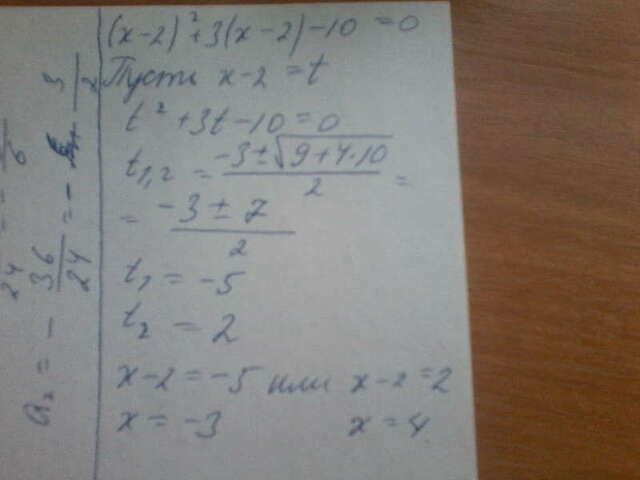 (x-2)²+3(x-2)-10=0
Пусть x-2=t
t²+3t-10=0
t₁,₂ = (-3±√(9+4·10))/2 =
= (-3±7)/2
t₁ = -5
t₂ = 2
x-2=-5 или x-2=2
x=-3 x=4
a₂ = -36/24 = -